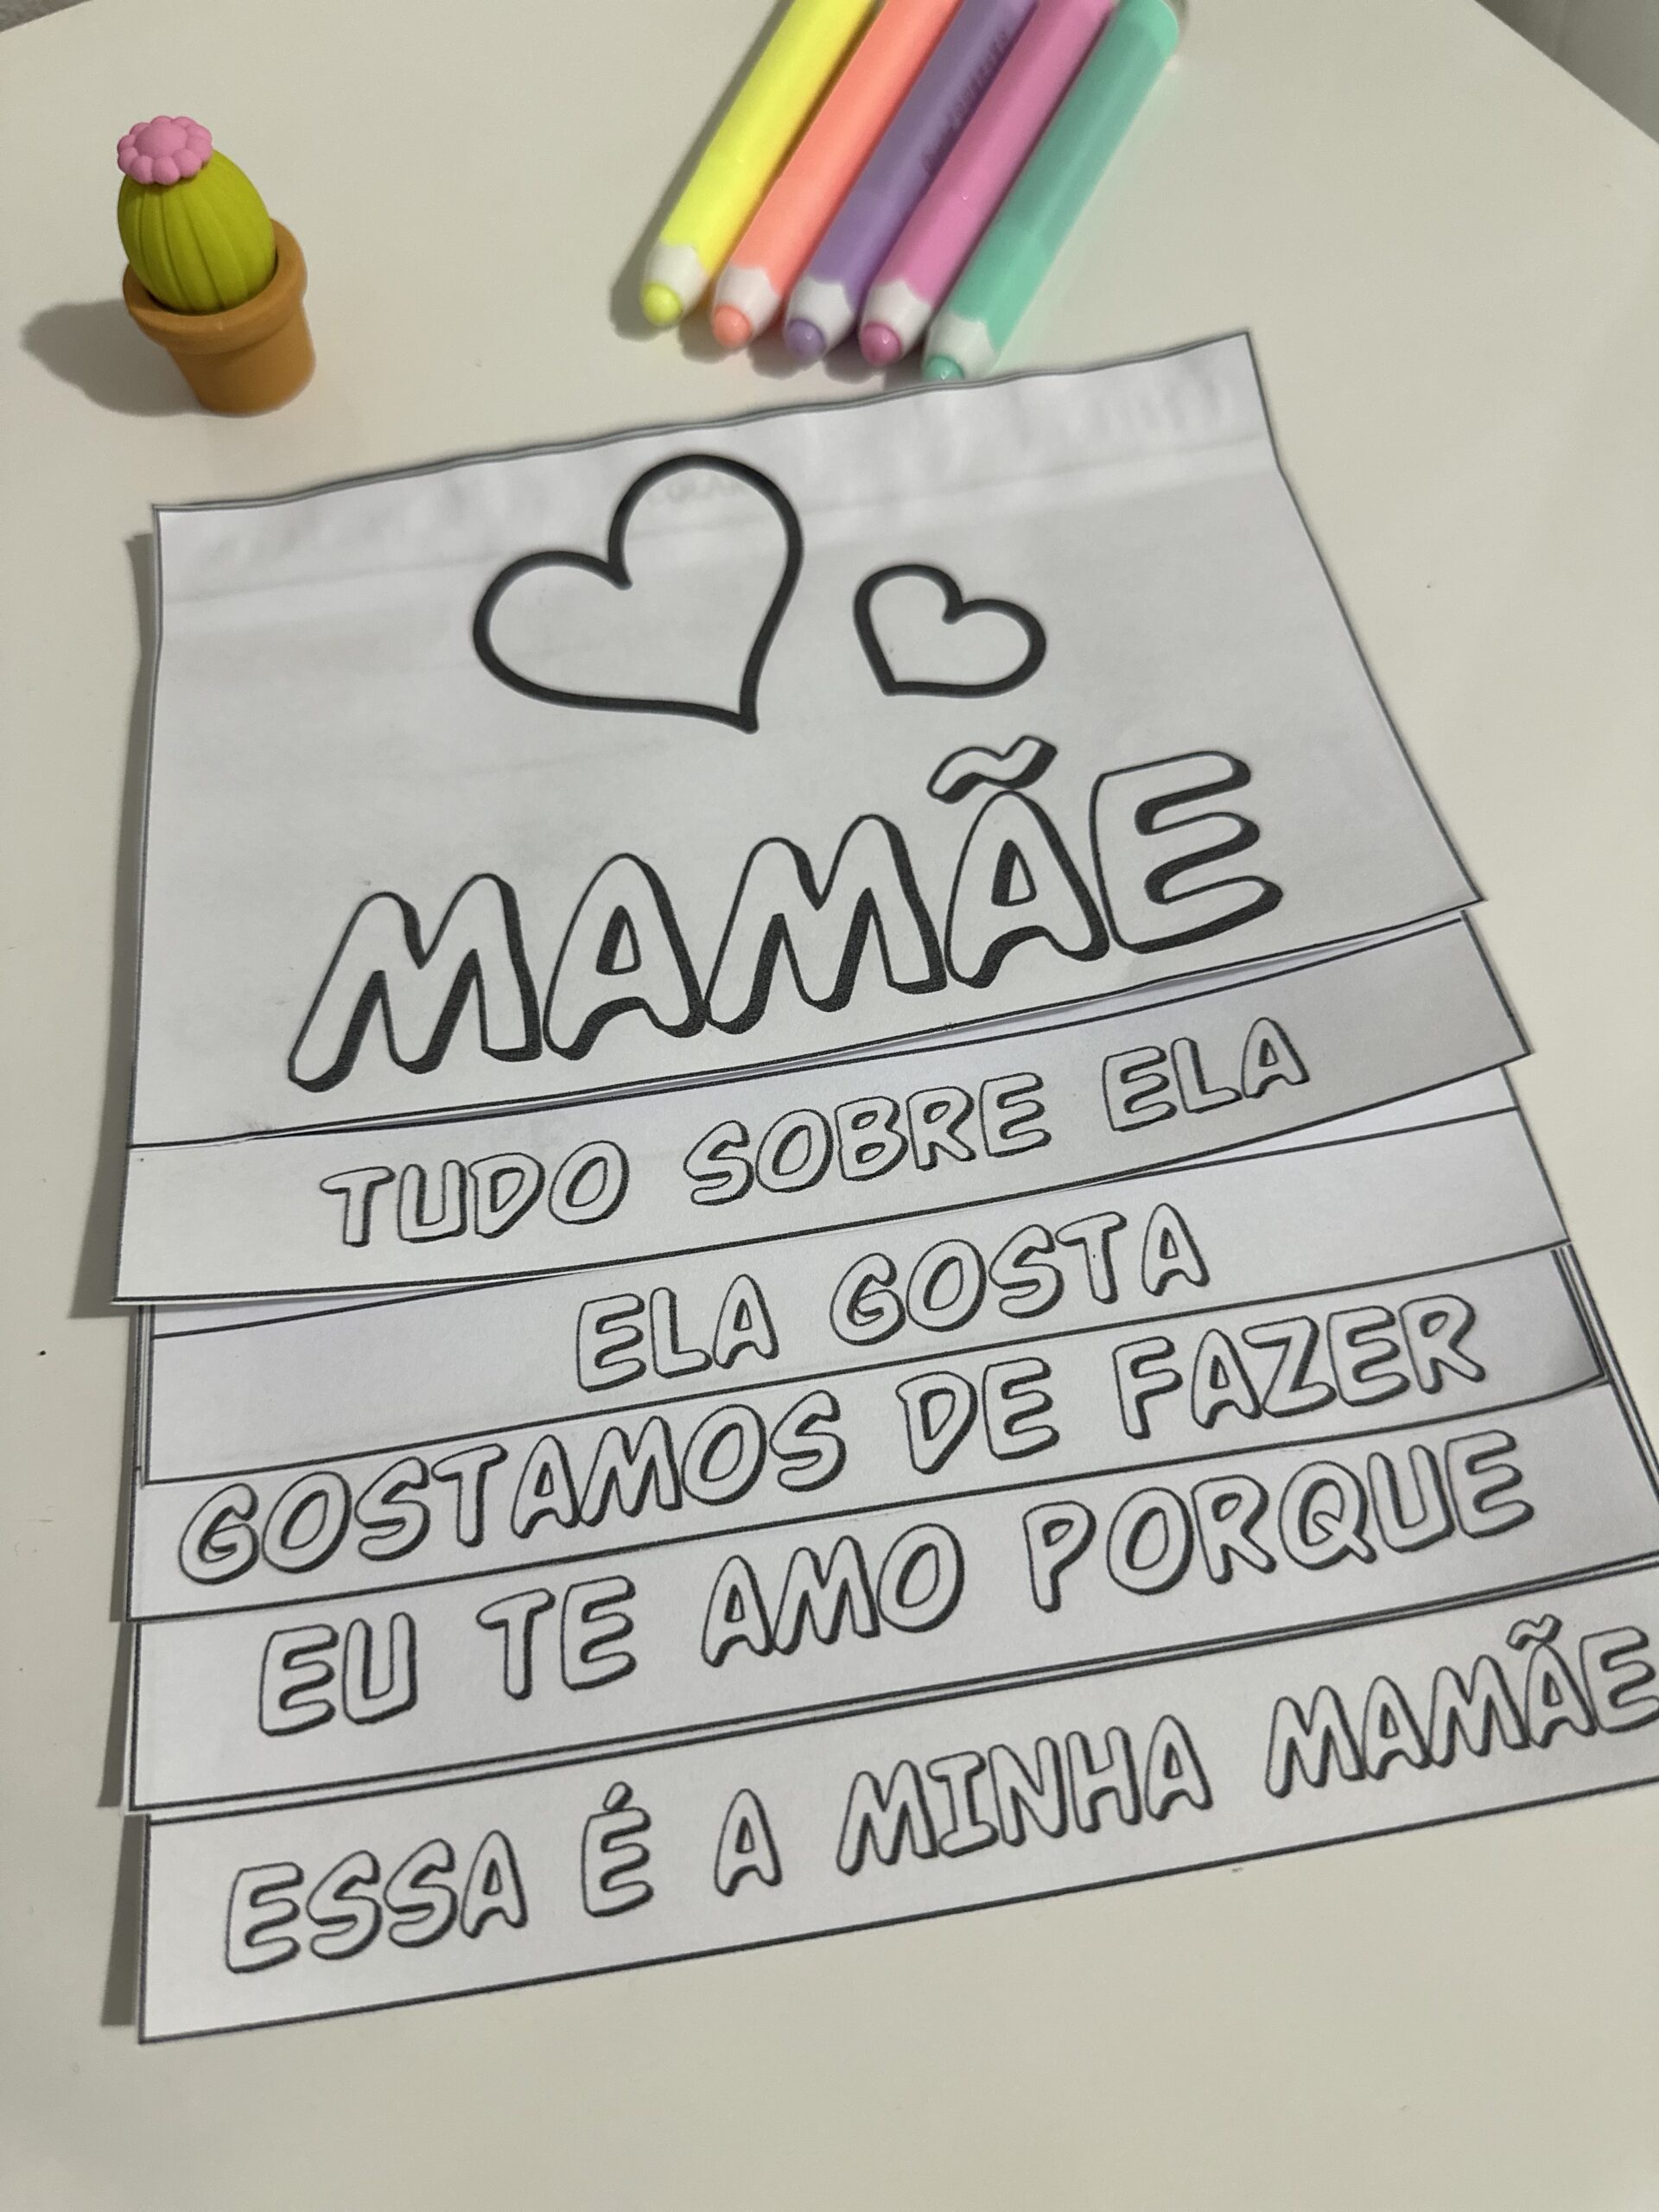 MAMÃE
TUDO SOBRE ELA
ELA GOSTA
GOSTAMOS DE FAZER
EU TE AMO PORQUE
ESSA É A MINHA MAMÃE